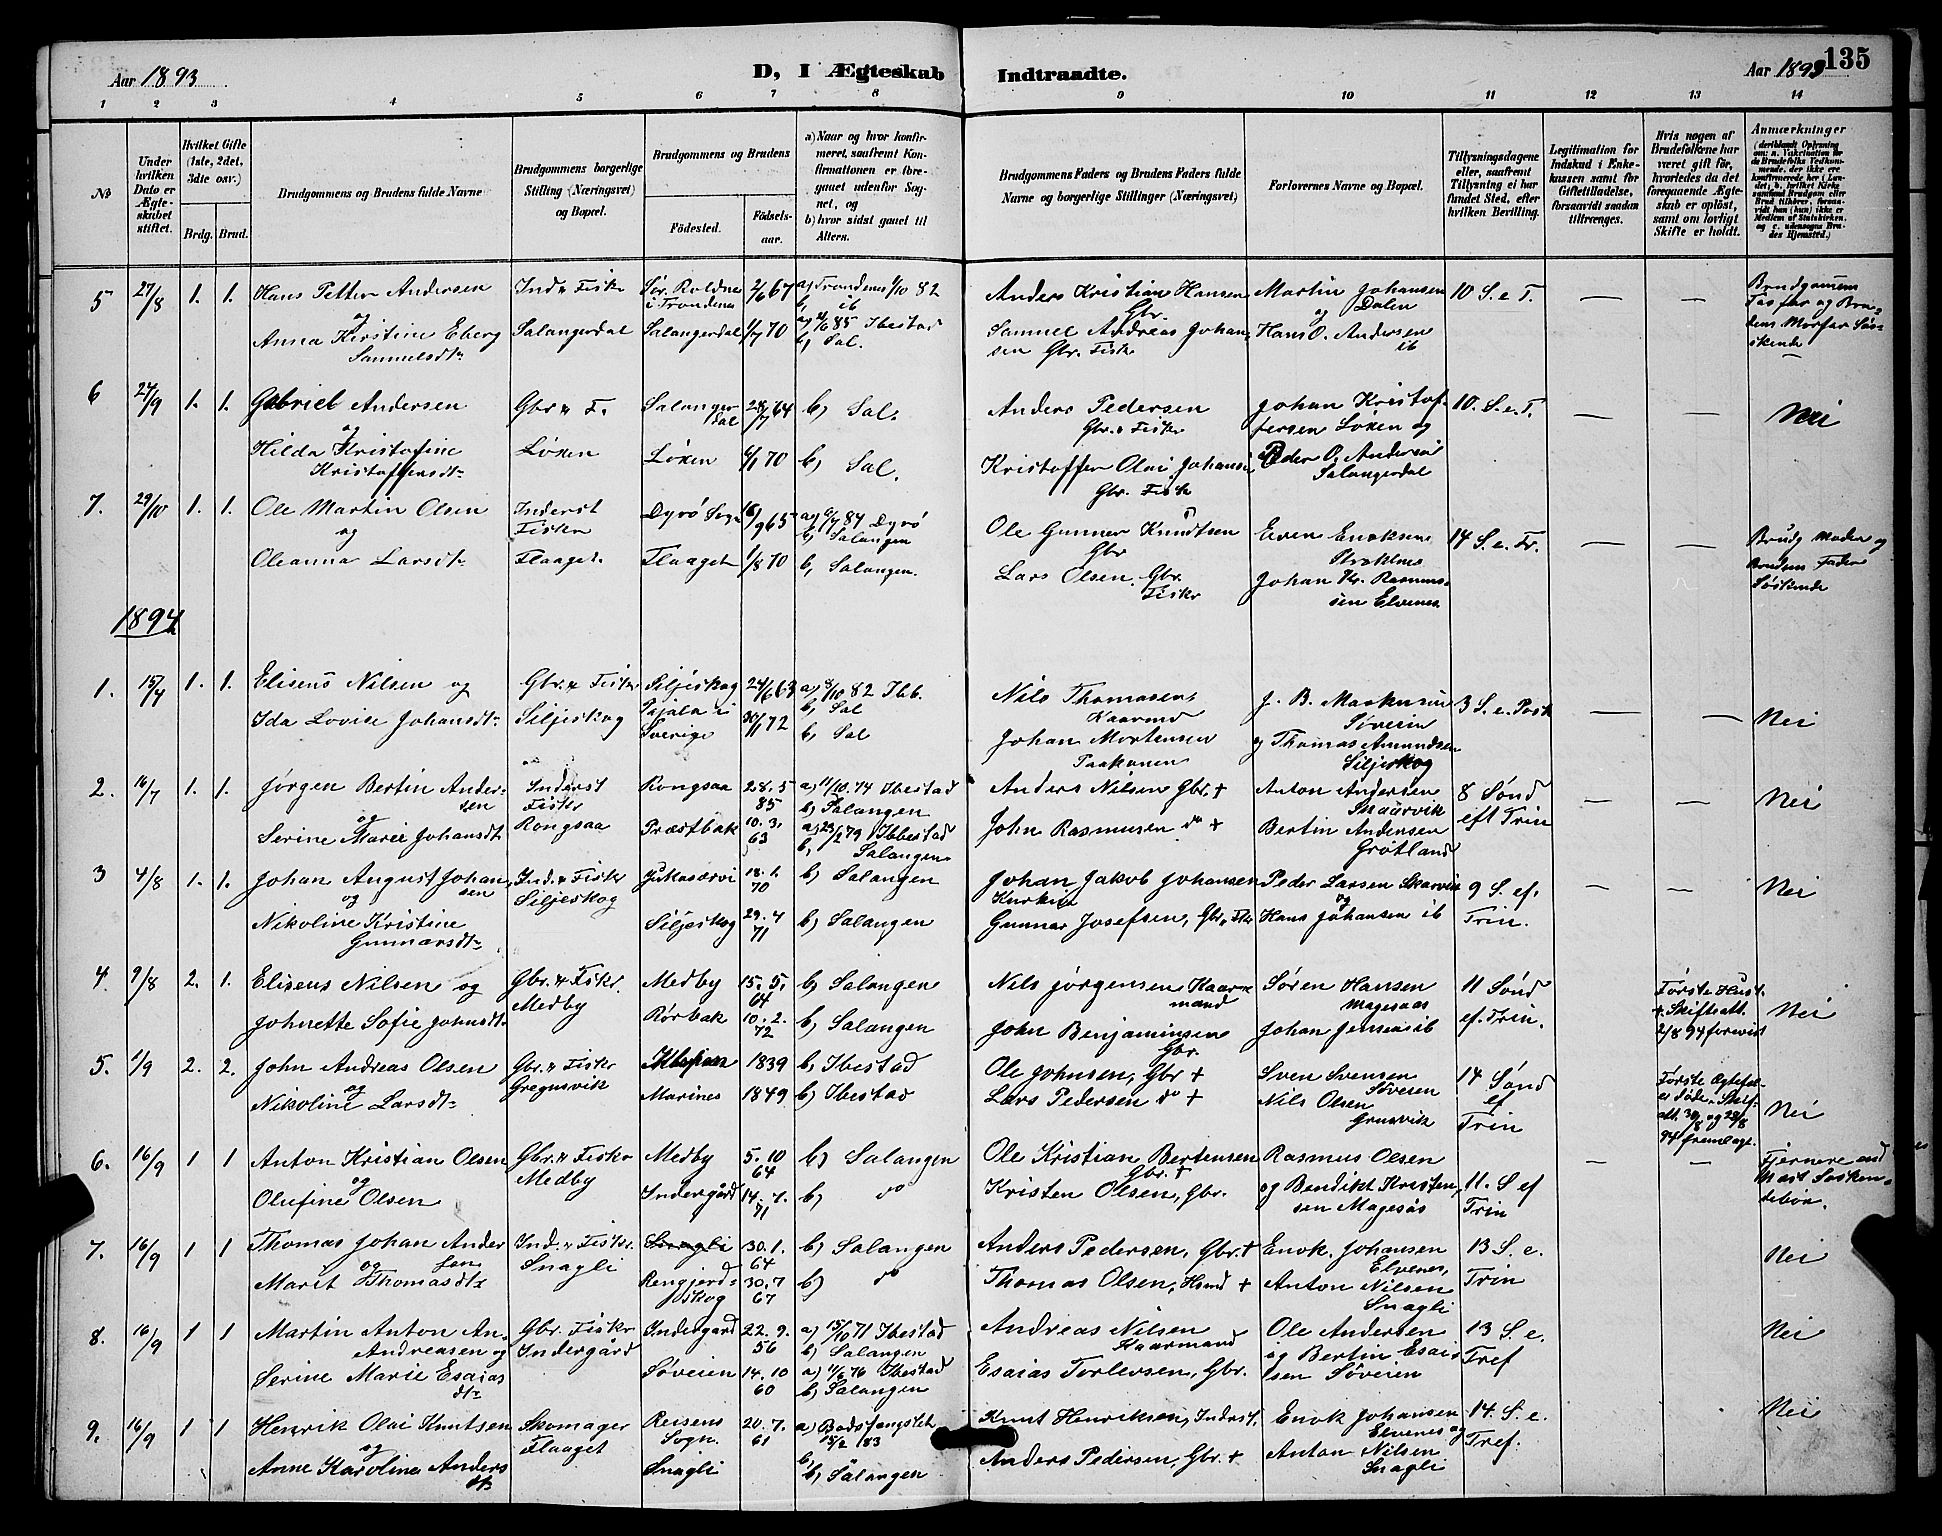 Aar 1893 D, I Ægteskab Indtraadte. Aar 1893 135
1 2 3 4 5 6 7 8 9 10 11 12 13 14
No
Under hvilken Dato er Ægteskabet stiftet.
Hvilket Gifte (1ste, 2det, 3die osv.)
Brdg. Brud.
Brudgommens og Brudens fulde Navne
Brudgommens borgerlige Stilling (Næringsvei) og Bopæl.
Brudgommens og Brudens
Födested. Födsels-aar.
a) Naar og hvor konfirmeret, saafremt Konfirmationen er foregaaet udenfor Sognet, og
b) hvor sidst gaaet til Altern.
Brudgommens Faders og Brudens Faders fulde Navne og borgerlige Stillinger (Næringsvei)
Forlovernes Navne og Bopæl.
Tillysningsdagene eller, saafremt Tillysning ei har fundet Sted, efter hvilken Bevilling.
Legitimation for Indskud i Enkekassen samt for Giftetilladelse, forsaavidt saadan tiltrænges.
Hvis nogen af Brudefolkene har været gift før, hvorledes da det foregaaende Ægteskab er opløst, samt om lovligt Skifte er holdt.
Anmærkninger
5 27/8 1. 1. Hans Petter Andersen Ind. & Fisker 2/6 67 a) Trondenes 1/10 82 Anders Kristian Hansen Martin Johansen 10 S. e T. — — Brudgommens
og i Trondenes b) ib Gbr. og Dalen Farfar og Bru-
Anna Kirstine Eberg Salangerdal Salangerdal 1/7 70 85 Ibestad Samuel Andreas Johan- Hans O. Andersen dens Morfar Søs-
Samuelsdtr b) Sal. sen Gbr. Fisker ib skende
6 24/9 1. 1. Gabriel Andersen Gbr. & F. Salanger- 28/7 64 b) Sal. Anders Pedersen Johan Kristof- 10. S. e. T. — — Nei
og dal Gbr. & Fisker fersen Løxen og
Hilda Kristofine Løxen Løxen 6/1 70 b) Sal. Kristoffer Olai Johansen Peder O. Andersen
Kristoffersdtr Gbr. Fisk Salangerdal
7. 29/10 1. 1. Ole Martin Olsen Inderst Dyrö Sogn 16/9 65 a) 6/7 84 Dyrö Ole Gunner Knudtsen Even Enoksen 14 S. e. Tr. — — Brudg Moder og
og Fisker b) Salangen Gbr Brudens Fader
Oleanna Larsdtr Flaaget. Flaaget 1/8 70 b) Salangen. Lars Olsen. Gbr. Johan Kr. Rasmus- Søskende
Fiskr sen Elvenes
1894
1. 15/4 1. 1. Eliseus Nilsen og Gbr. & Fisker Siljeskog 24/6 63 a) 8/10 82 Ibb. Nils Thomasen J. B. Markussen 3 S. e. Posk — — Nei
b) Sal Kaarmd Søveien
Ida Lovise Johansdtr Siljeskog Pajala i Sverige 30/11 72 b) Sal Johan Mortensen og Thomas Amundsen
Siljeskog
2. 16/7 1. 1. Jørgen Bertin Ander- Inderst Rongsaa 28. 5 a) 11/10. 74 Ibestad Anders Nilsen Gbr. + Anton Andersen 8 Sønd — — Nei
og sen Fisker 85 b) Salangen eft Trin
Serine Marie Johansdt Rongsaa Præstbak 10. 3. 63 a) 23/2 79 Ibbestad John Rasmusen do + Bertin Andersen
b) Salangen Grøtland
3 4/8 1. 1. Johan August Johan- Ind. & Fisker Jukasærvi 18. 1. 70 b) Salangen Johan Jakob Johansen Peder Larsen Skarvik 9 S. ef. — — Nei
og sen Siljeskog og Trin.
Nikoline Kristine Siljeskog 29. 4 71 b) Salangen Gunnar Josefsen, Gbr. & Fisker Hans Johansen ib
Gunnarsdtr
4. 9/8 2. 1. Eliseus Nilsen og Gbr. & Fiskr. Medby 15. 5. 64 b) Salangen Nils Jørgensen Kaar- Søren Hansen 11 Sønd Første Hust. Nei
Medby mand Magesaas ef. Trin. Skifteatt.
Johnette Sofie Johnsdt. Rørbak 10. 2. 72 b) Salangen John Benjaminsen Johan Jensen ib 2/8 94 forevist
Gbr.
5. 1/9 2. 2. John Andreas Olsen Gbr. & Fiskr 1839 b) Ibestad Ole Johnsen, Gbr + Sven Svensen 14 Sønd Første Ægtefæl- Nei
og Gregusvik Søveien ef
Nikoline Larsdtr Marines 1849 b) Ibestad Lars Pedersen do + Nils Olsen Trin
94 fremlagt.
6. 16/9 1 1 Anton Kristian Olsen Gbr. & Fisker Medby 5. 10 64 b) Salangen Ole Kristian Bertensen Rasmus Olsen 11. S ef — — Fjernere end
og Medby Gbr. + Trin Næst Søsken-
Olufine Olsen Indergård 14. 7. 71 b) do Kristen Olsen, Gbr. og Bendikt Kristen- debørn.
sen Magesås
7. 16/9 1 1 Thomas Johan Ander Ind. & Fisker. Snagli 30. 1. 64 b) Salangen Anders Pedersen, Gbr. + Enok. Johansen 13 S. e. Nei
og sen Snagli Elvenes, Trin
Marit Thomasdtr Rengjerd- skog 30. 7 67 b) do Thomas Olsen, Hsmd + Anton Nilsen
Snagli
8. 16/9 1 1 Martin Anton An- Gbr. Fiskr Indergård 22. 9. 56 a) 15/10 71 Ibestad Andreas Nilsen Ole Andersen 13 S. e. Nei
Andreasen og Indergård b) Salangen Kaarmand og Bertin Esaias Tref
Serine Marie Esaias Søveien 14. 10 60 a) 11/6 76 Ibestad Esaias Torlevsen, Gbr. sen Søveien
dtr b) Salangen
9. 16/9 1 1 Henrik Olai Knutsen Skomager Reisens Sogn. 20. 7. 61 a) Bodsfængslet Knut Henriksen, Inderst. Enok Johansen 14. S. e. Nei
og Flaaget 15/2 83 Elvenes og Tref.
Anne Karoline Anders Snagli b) Salangen Anders Pedersen, Gbr. + Anton Nilsen
dtr Snagli